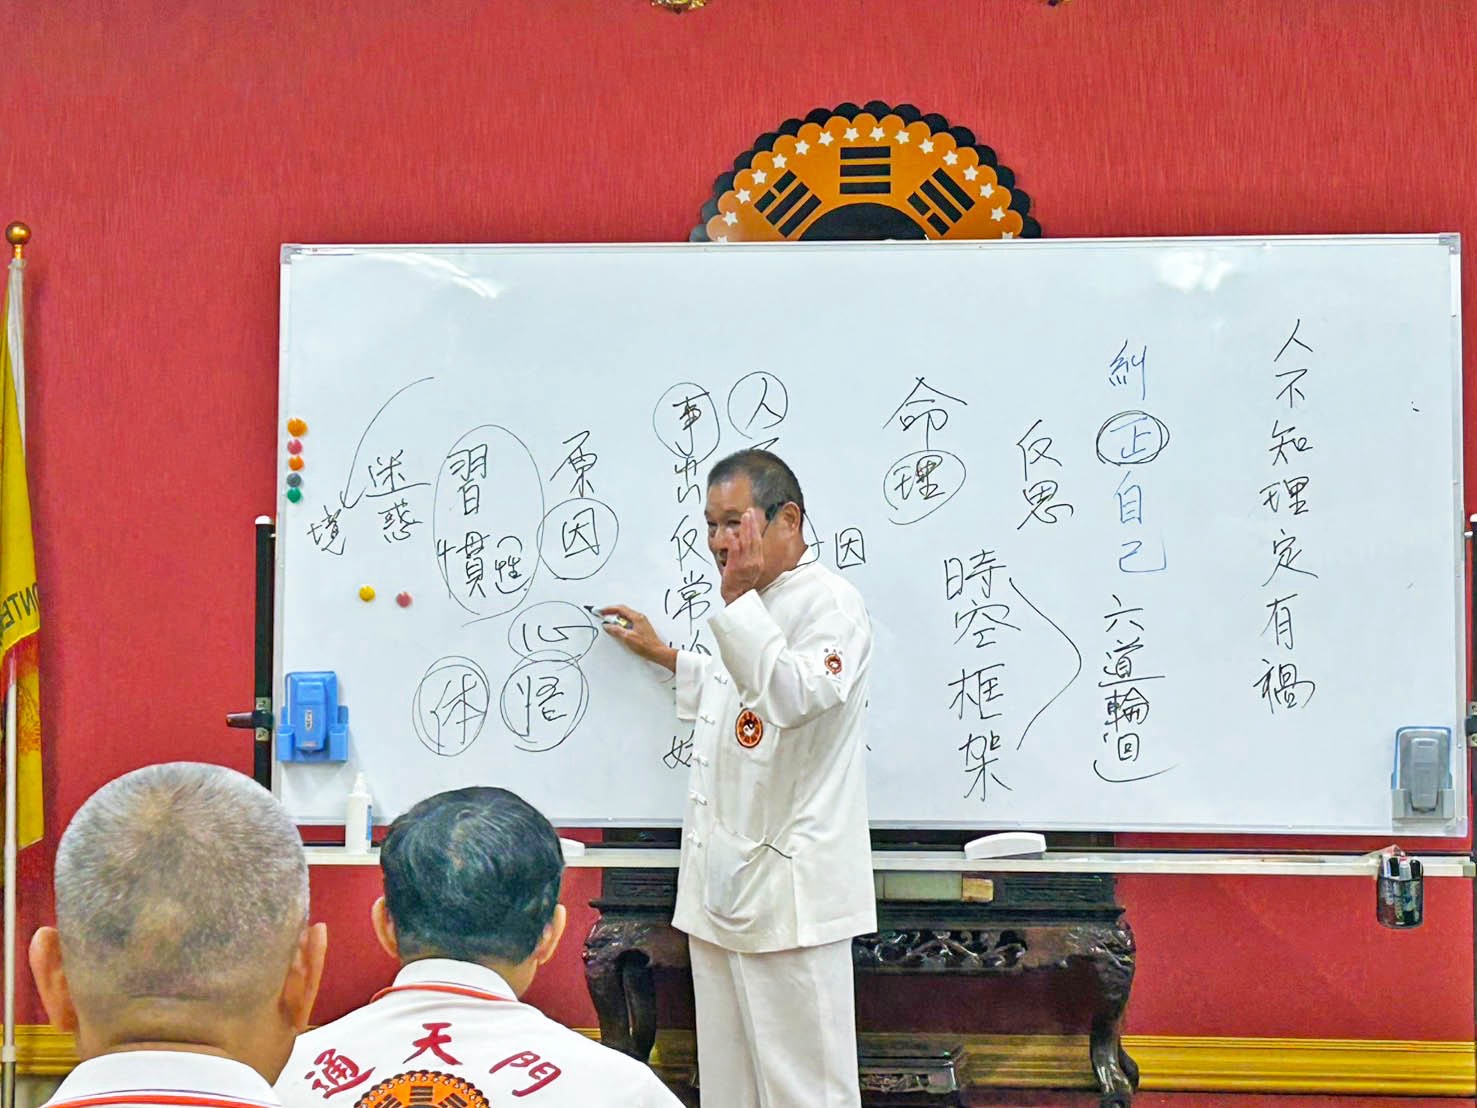 人不知理定有禍
糾正自己
六道輪回
反思
時空框架
命理
因
人
事出反常必
妖
原因
心悟
習慣(性)
体
迷惑
境
通天門